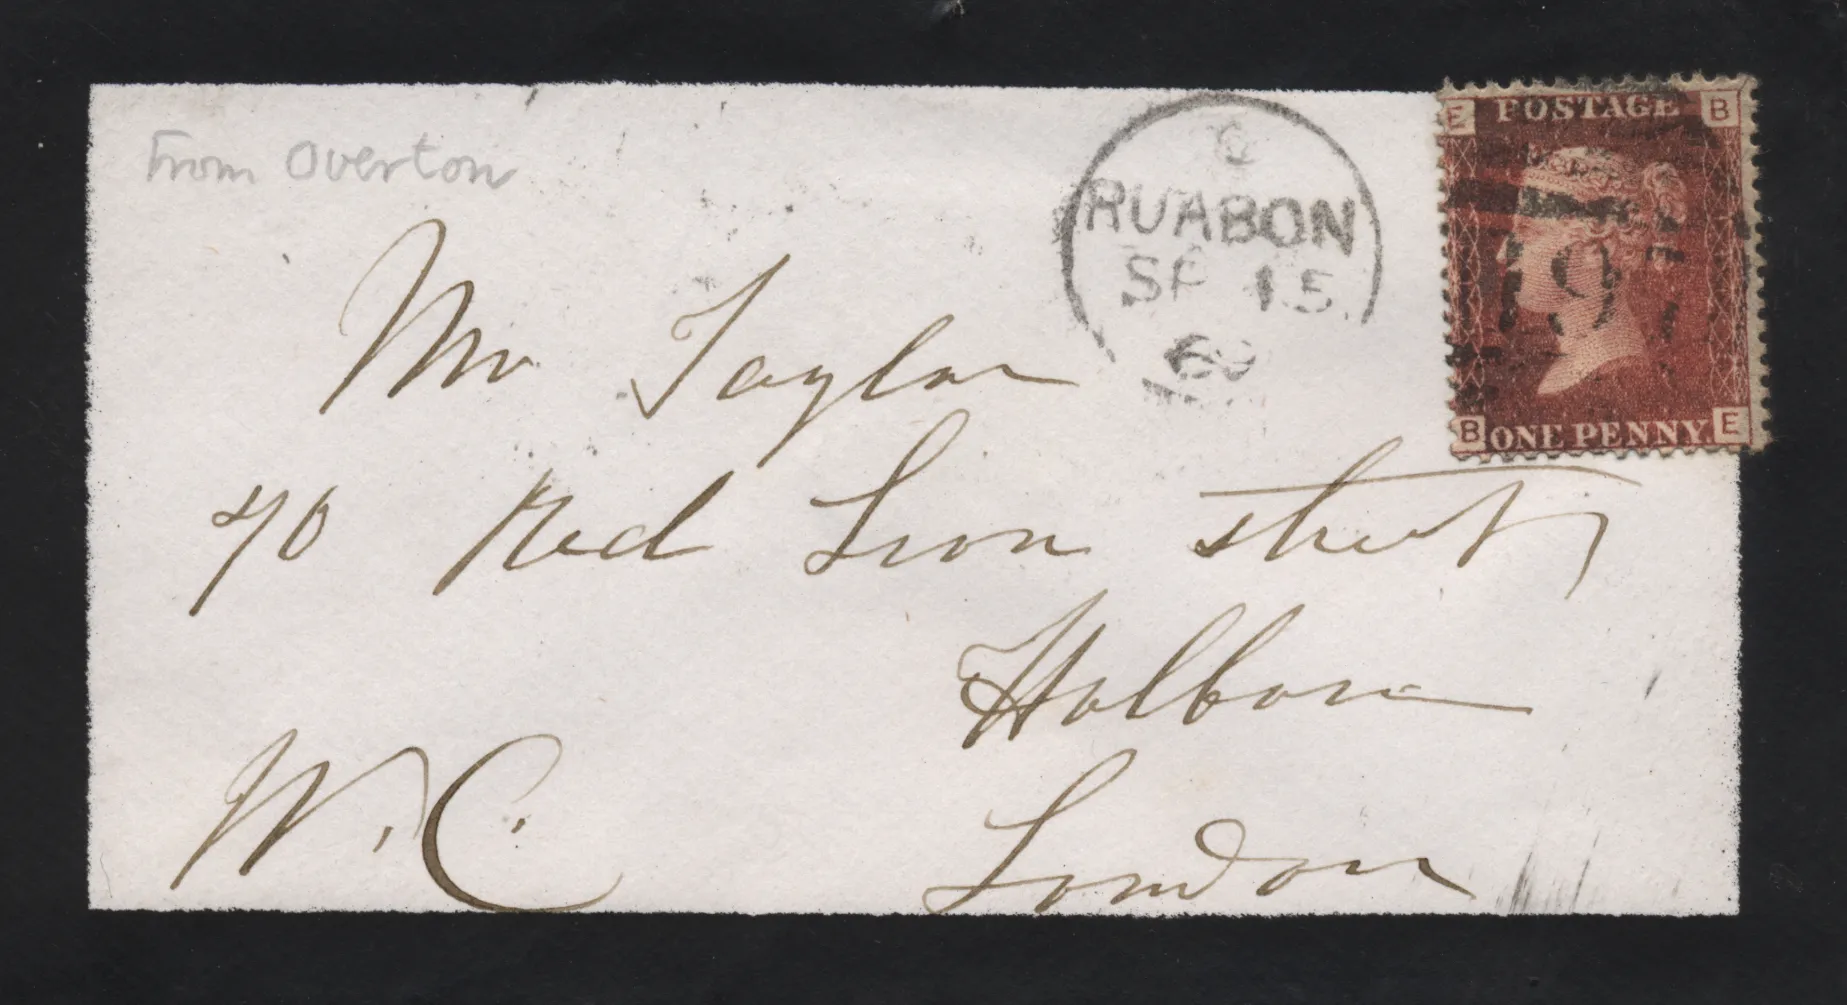 From Overton
C
RUABON
SP 15
69
E POSTAGE B
B ONE PENNY. E
Mr Taylor
70 Red Lion Street
Holborn
W.C. London